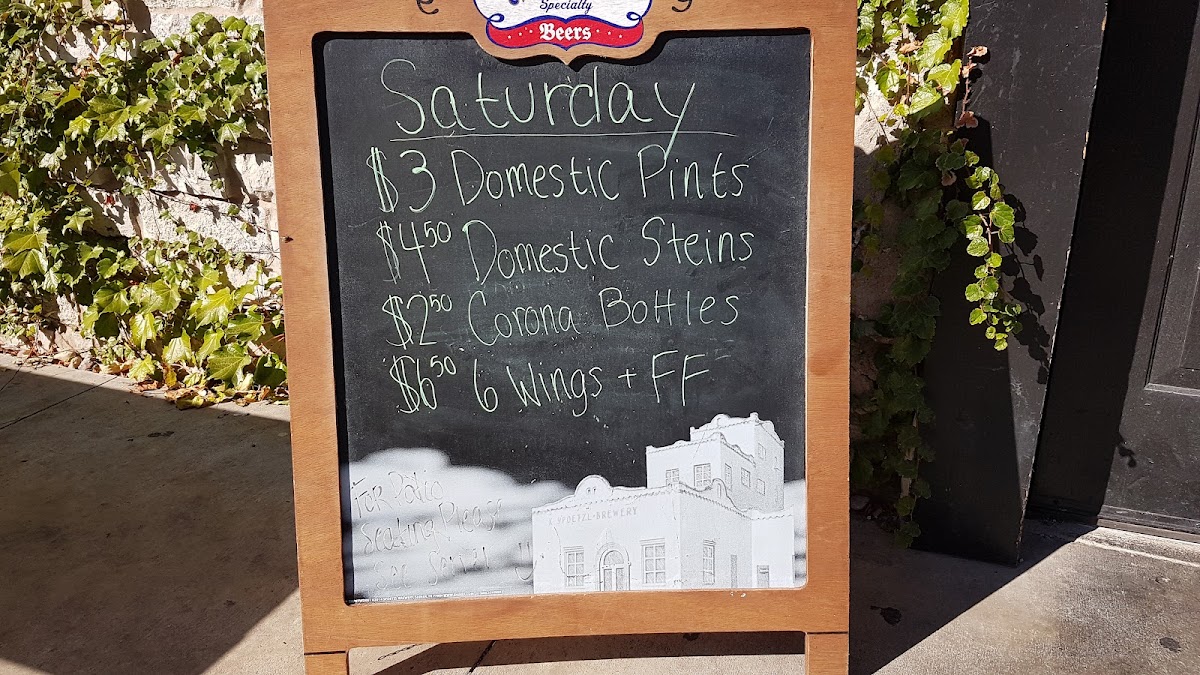 Specialty
Beers
Saturday
$3 Domestic Pints
$4.50 Domestic Steins
$2.50 Corona Bottles
$6.50 6 Wings + FF
For Patio
Seating Please
SPOETZL-BREWERY